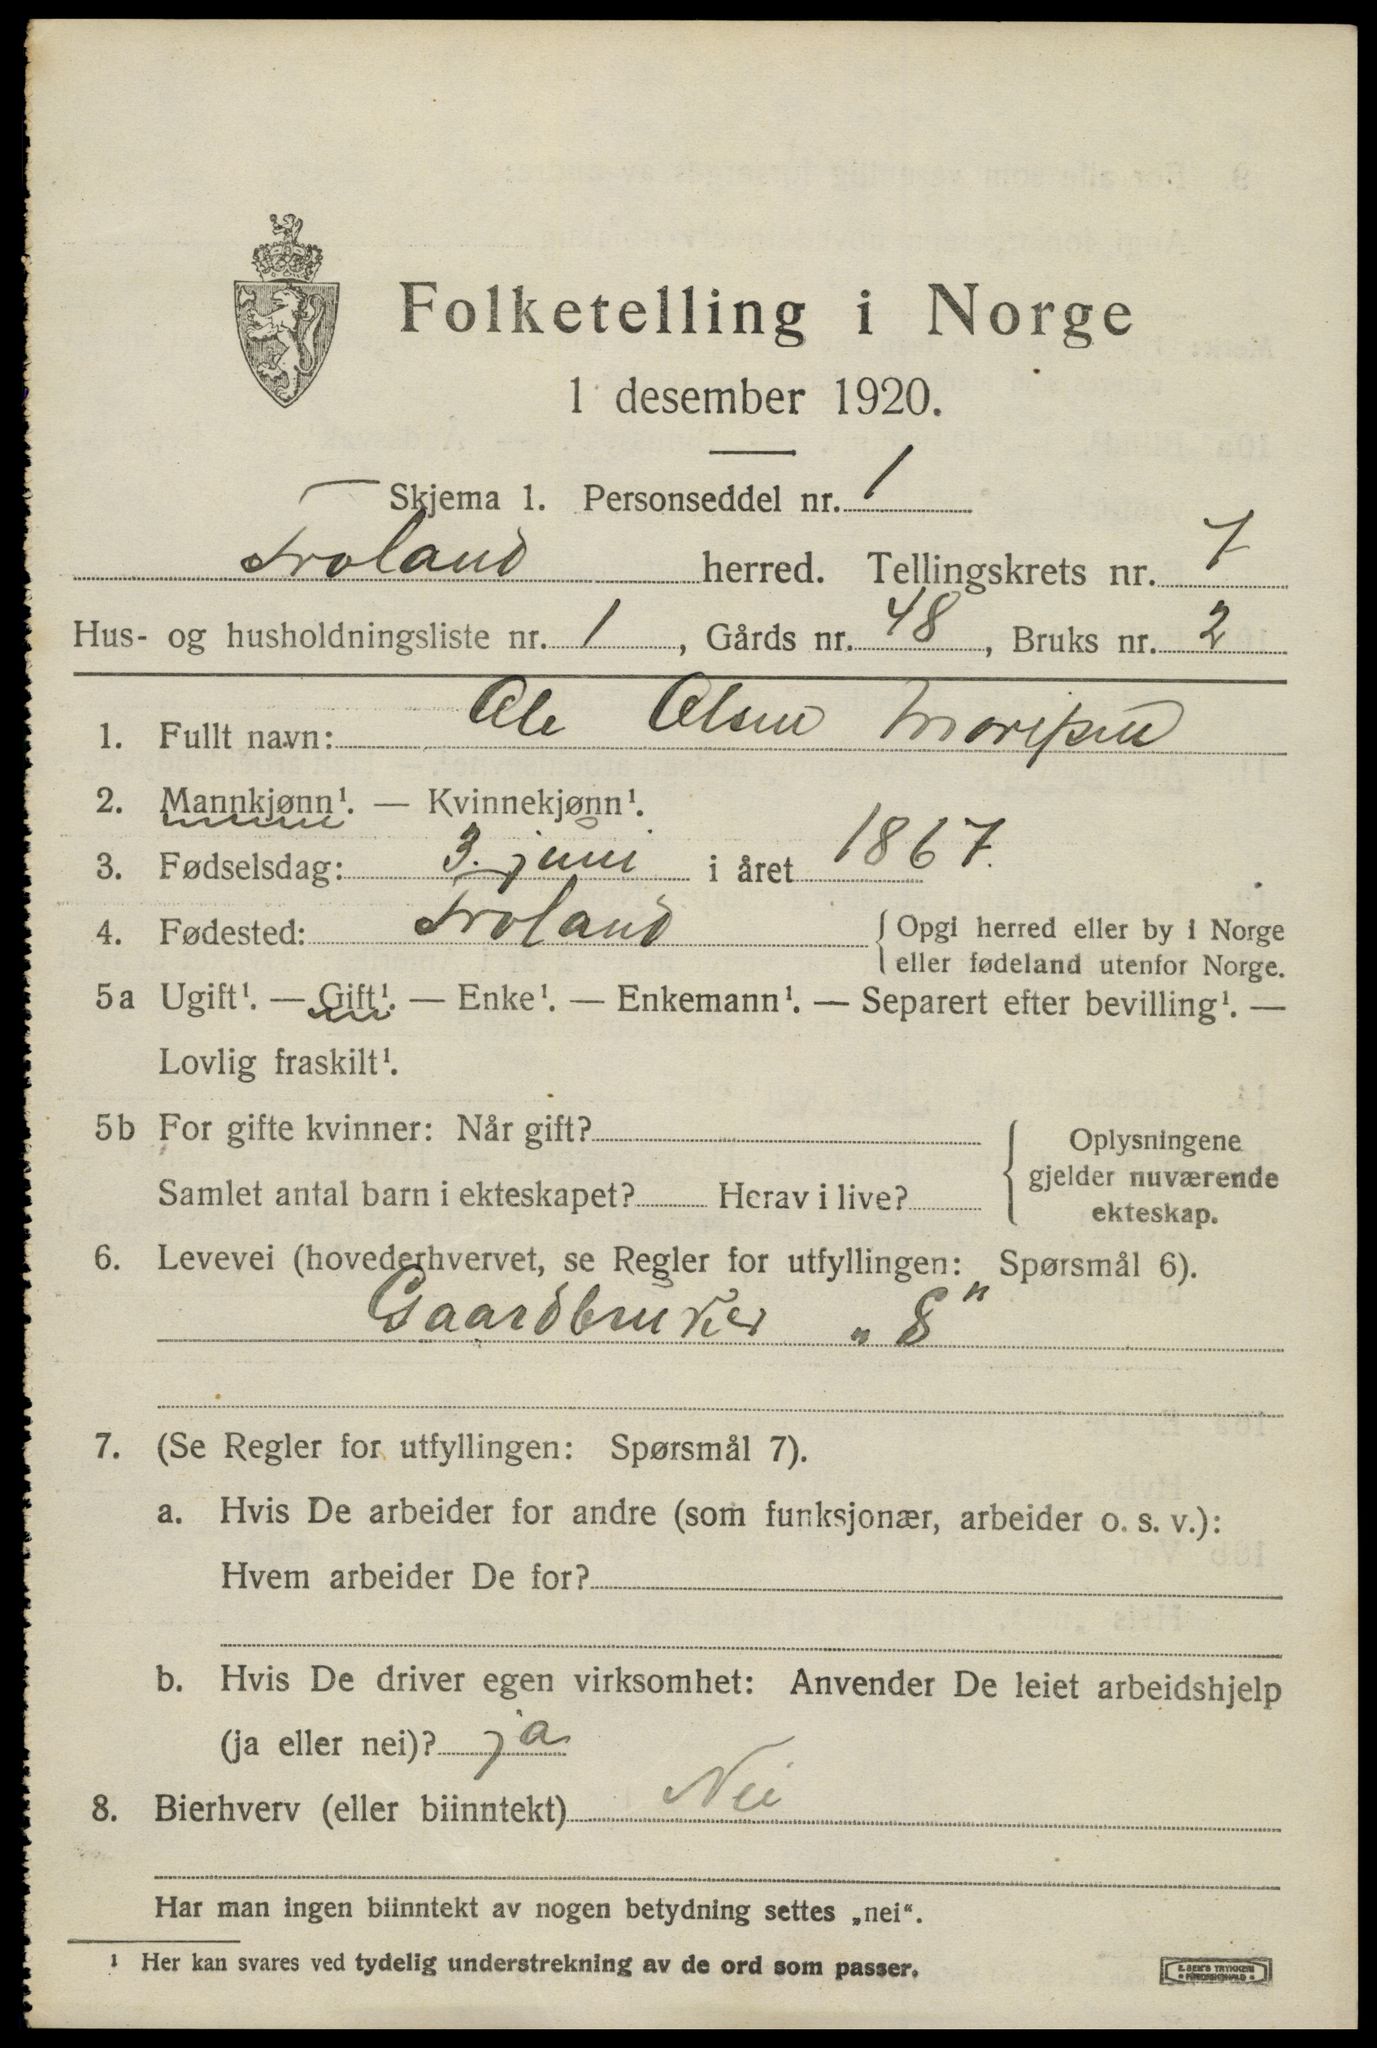 Folketelling i Norge
1 desember 1920.
Skjema 1. Personseddel nr. 1
Froland herred. Tellingskrets nr. 7
Hus- og husholdningsliste nr. 1, Gårds nr. 48, Bruks nr. 2
1. Fullt navn: Ole Olsen
2. Mannkjønn¹. — Kvinnekjønn¹.
3. Fødselsdag: 3. juni i året 1867.
4. Fødested: Froland {Opgi herred eller by i Norge
eller fødeland utenfor Norge.
5a Ugift¹. — Gift¹. — Enke¹. — Enkemann¹. — Separert efter bevilling¹. —
Lovlig fraskilt¹.
5b For gifte kvinner: Når gift?
Samlet antal barn i ekteskapet? Herav i live?
Oplysningene
gjelder nuværende
ekteskap.
6. Levevei (hovederhvervet, se Regler for utfyllingen: Spørsmål 6).
Gaardbruker „S"
7. (Se Regler for utfyllingen: Spørsmål 7).
a. Hvis De arbeider for andre (som funksjonær, arbeider o. s. v.):
Hvem arbeider De for?
b. Hvis De driver egen virksomhet: Anvender De leiet arbeidshjelp
(ja eller nei)? ja
8. Bierhverv (eller biinntekt) Nei
Har man ingen biinntekt av nogen betydning settes „nei“.
¹ Her kan svares ved tydelig understrekning av de ord som passer.